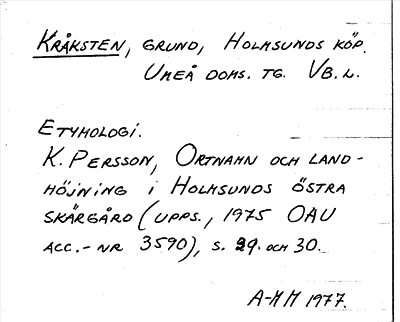 KRÅKSTEN, GRUND, HOLMSUNDS KÖP.
UMEÅ DOMS. TG. VB. L.
ETYMOLOGI.
K. PERSSON, ORTNAMN OCH LAND-
HÖJNING I HOLMSUNDS ÖSTRA
SKÄRGÅRD (UPPS., 1975 OAU
ACC.-NR 3590), S. 29. OCH 30.
A-MM 1977.